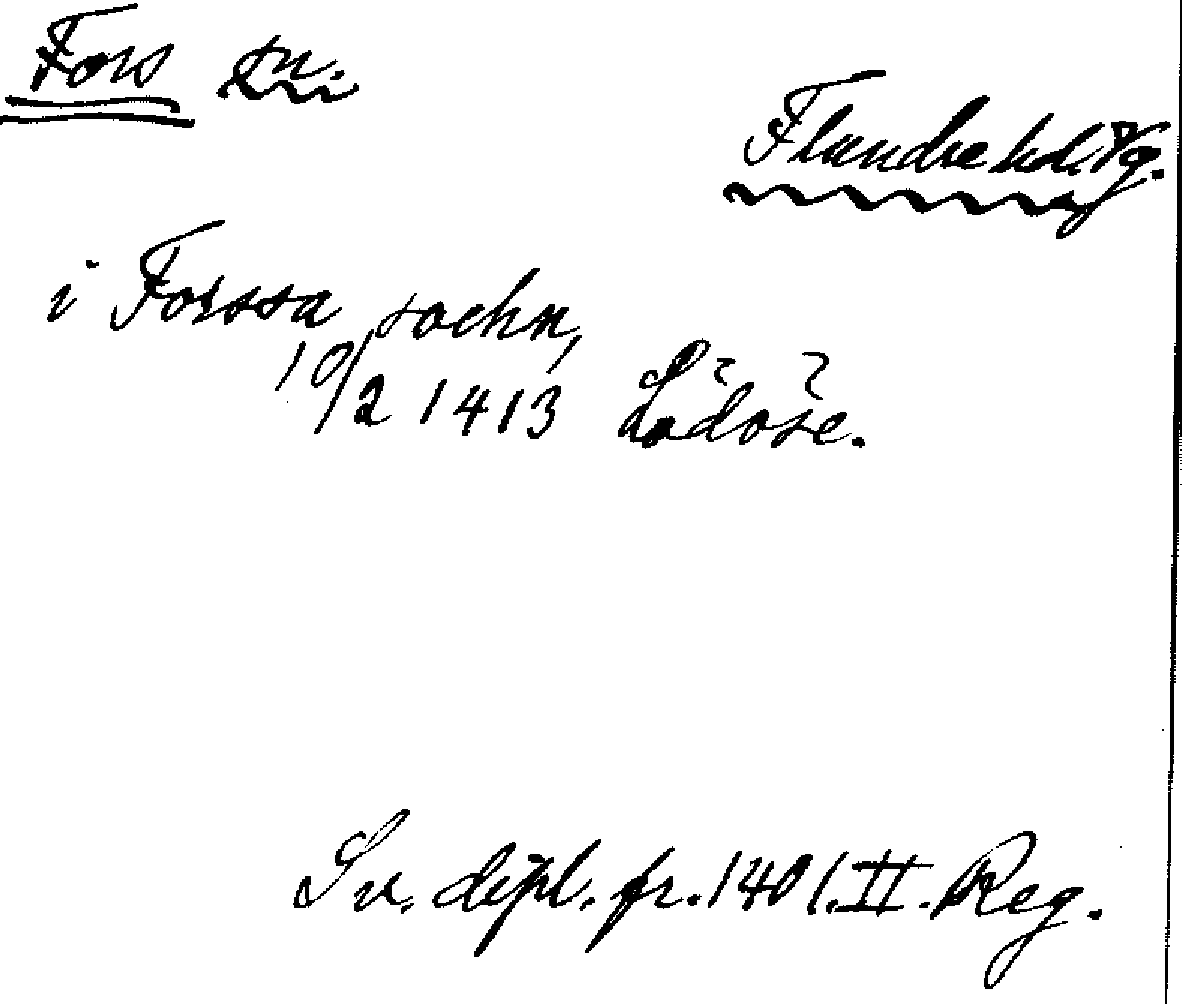 Fors sn.
Flundre hd. Vg.
i Forssa sochn,
10/2 1413 Lödöse.
Sv. dipl. fr. 1401. II. Reg.